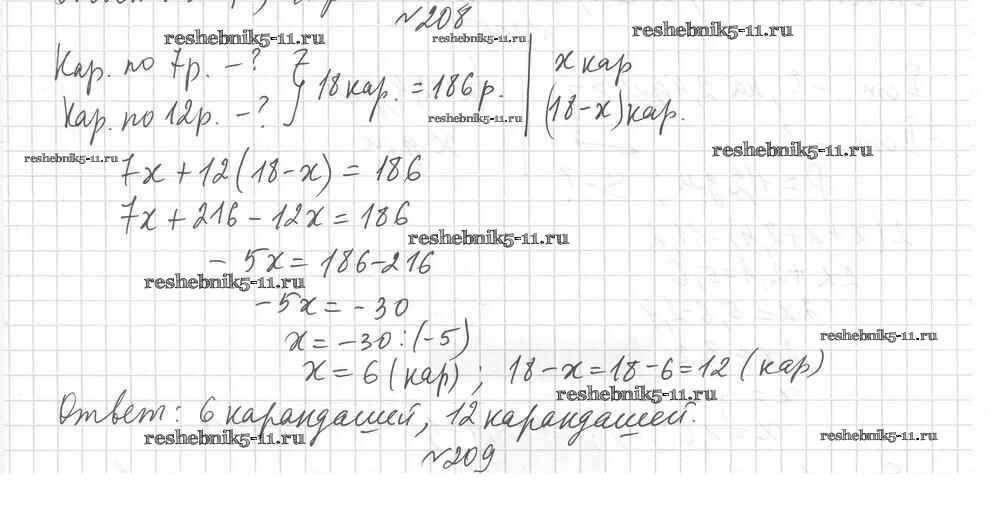 №208
reshebnik5-11.ru reshebnik5-11.ru reshebnik5-11.ru
Кар. по 7р. – ? } 18 кар. = 186 р. | x кар
Кар. по 12р. – ? (18-x) кар.
reshebnik5-11.ru
reshebnik5-11.ru reshebnik5-11.ru
7x + 12(18-x) = 186
7x + 216 - 12x = 186
reshebnik5-11.ru
- 5x = 186-216
reshebnik5-11.ru
-5x = -30
x = -30:(-5)
reshebnik5-11.ru
x = 6 (кар) ; 18-x=18-6=12 (кар)
reshebnik5-11.ru
Ответ: 6 карандашей, 12 карандашей.
reshebnik5-11.ru reshebnik5-11.ru
№209